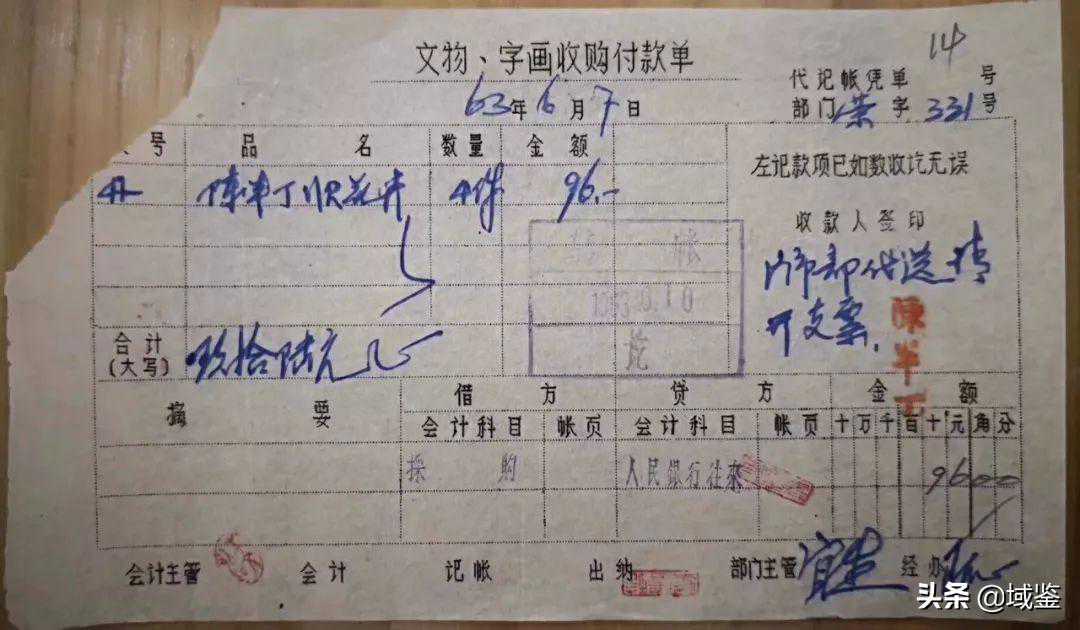 文物、字画收购付款单
14
代记帐凭单 号
63年6月7日
部门 荣 字 331号
号 品 名 数量 金额
左记款项已如数收讫无误
陈半丁 花卉 4件 96.—
收款人签印
帐
门市部代送请
开支票.
陳半丁
讫
合计
(大写) 玖拾陆元
摘 要 借 方 贷 方 金 额
会计科目 帐页 会计科目 帐页 十万千百十元角分
採 购 人民银行往來 9600
会计主管 会计 记帐 出纳 部门主管 经办
头条 @域鉴